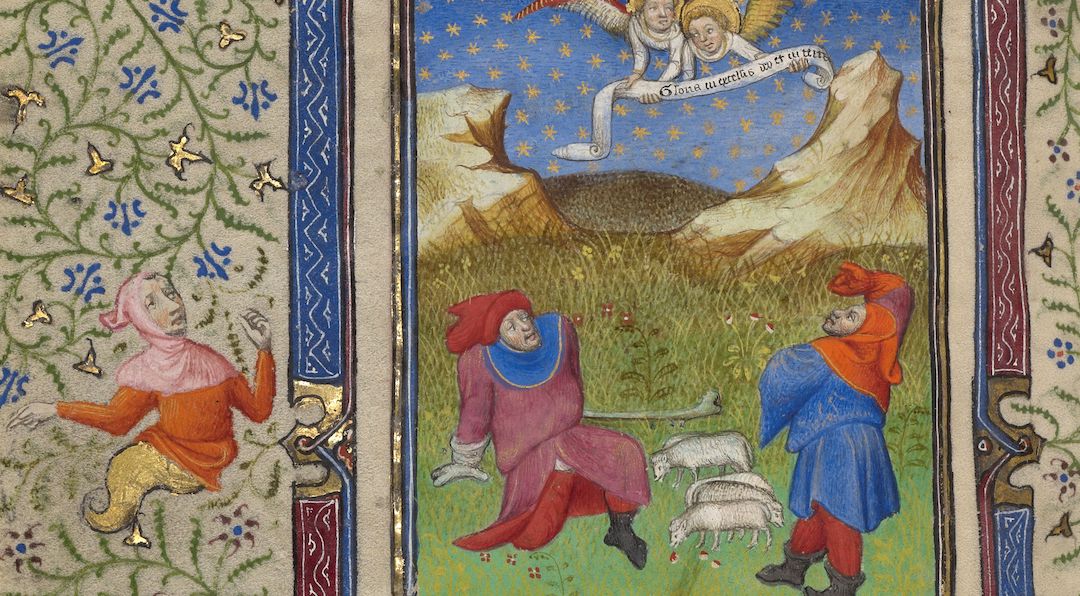 Gloria in excelsis deo et in terra